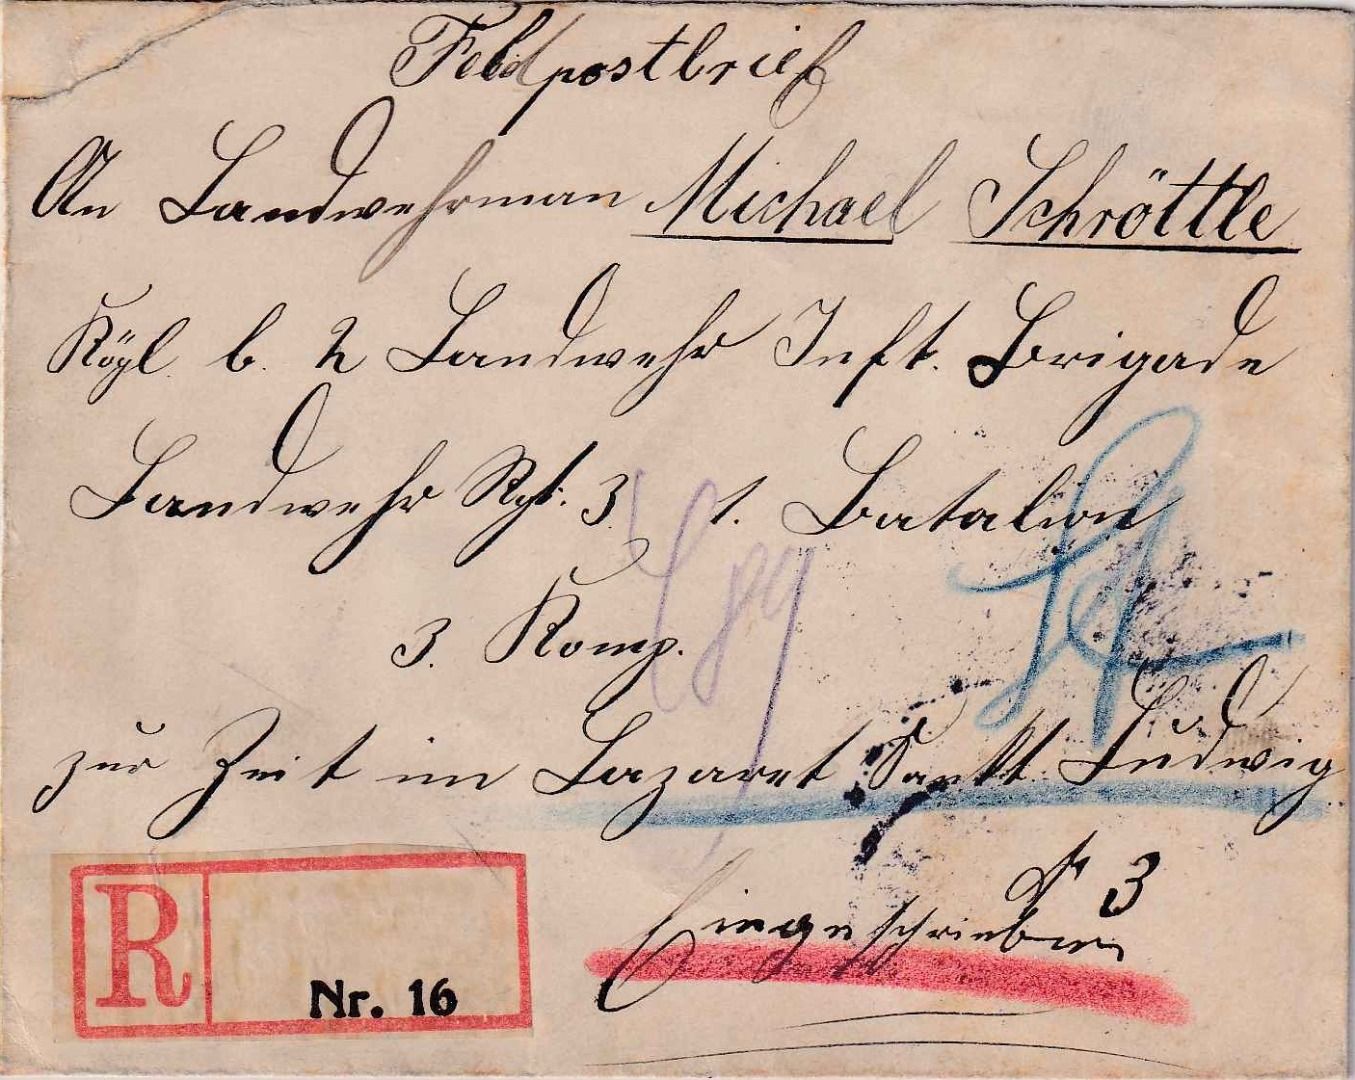 Feldpostbrief
An Landwehrman Michael Schröttle
Kögl. b. 2 Landwehr Inft. Brigade
Landwehr Rgt. 3. 1. Batalion
3. Komp.
zur Zeit im Lazaret Sankt Ludwig
3
Eingeschrieben
R
Nr. 16